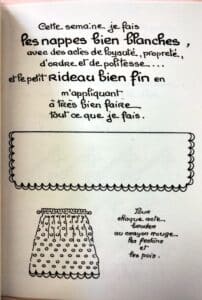 Cette semaine je fais
les nappes bien blanches,
avec des actes de loyauté, propreté,
d'ordre et de politesse....
et le petit rideau bien fin en
m'appliquant
à très bien faire
tout ce que je fais.
Pour
chaque acte...
broder
au crayon rouge...
les festons
et
les pois.